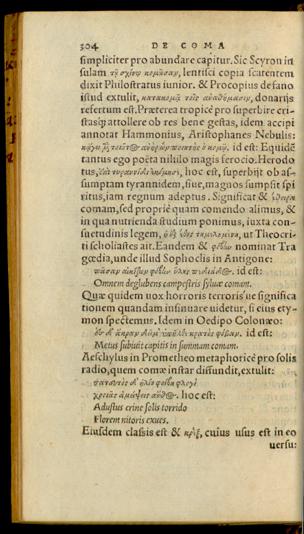 304 DE COMA
simpliciter pro abundare capitur. Sic Scyron in
sulam τῇ σχίνῳ κομῶσαν, lentisci copia scatentem
dixit Philostratus iunior. & Procopius de fano
istud extulit, κατακομᾷ τοῖς ἀναθήμασιν, donarijs
refertum est. Præterea tropicè pro superbire cri-
stasq; attollere ob res bene gestas, idem accipi
annotat Hammonius, Aristophanes Nebulis:
id est: Equidē
tantus ego poëta nihilo magis ferocio. Herodo
tus, hoc est, superbijt ob as-
sumptam tyrannidem, siue, magnos sumpsit spi
ritus, iam regnum adeptus. Significat & ἔθειρα
comam, sed propriè quam comendo alimus, &
in qua nutrienda studium ponimus, iuxta con-
suetudinis legem, ut Theocri-
ti scholiastes ait. Eandem & φόβην nominat Tra
gœdia, unde illud Sophoclis in Antigone:
πᾶσαν αἰκίζων φόβην ὕλης πεδιάδος. id est:
Omnem deglubens campestris syluæ comam.
Quæ quidem uox horroris terrorísue significa
tionem quandam insinuare uidetur, si eius ety-
mon spectemus. Idem in Oedipo Colonæo:
id est:
Metus subiuit capitis in summam comam.
Aeschylus in Prometheo metaphoricè pro solis
radio, quem comæ instar diffundit, extulit:
σταθευτὸς δ' ἡλίου φοίβῃ φλογὶ
χροιᾶς ἀμείψεις ἄνθος. hoc est:
Adustus crine solis torrido
Florem nitoris exues.
Eiusdem classis est & κράς, cuius usus est in eo
uersu: